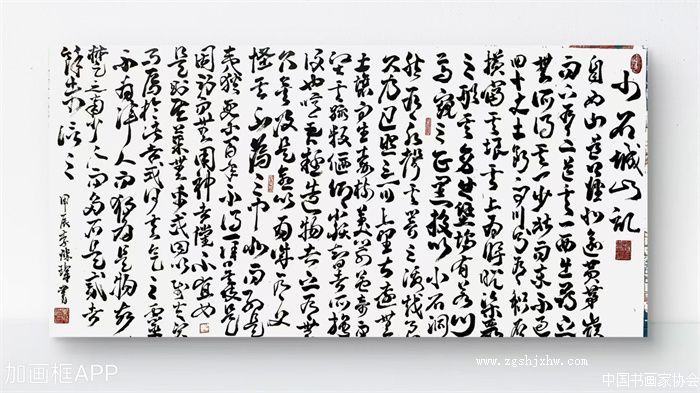 小石城山記
自西山道口徑北逾黃茅嶺
而下有二道其一西出尋之
無所得其一少北而東不過
四十丈土斷而川分有積石
橫當其垠其上為睥睨梁欐
之形其旁出堡塢有若門
焉窺之正黑投以小石洞
然有水聲其響之激越良
久乃已環之可上望甚遠無
土壤而生嘉樹美箭益奇而
堅其疏數偃仰類智者所施
設也噫吾疑造物者之有無
久矣及是愈以為誠有又
怪其不為之中州而列是
夷狄更千百年不得一售其伎是
固勞而無用神者儻不宜如
是則其果無乎或曰以慰夫賢
而辱於此者或曰其氣之靈
不為偉人而獨為是物故
楚之南少人而多石是二者
餘未信之
甲辰 書
www.zgshjxhw.com
加画框APP
中国书画家协会